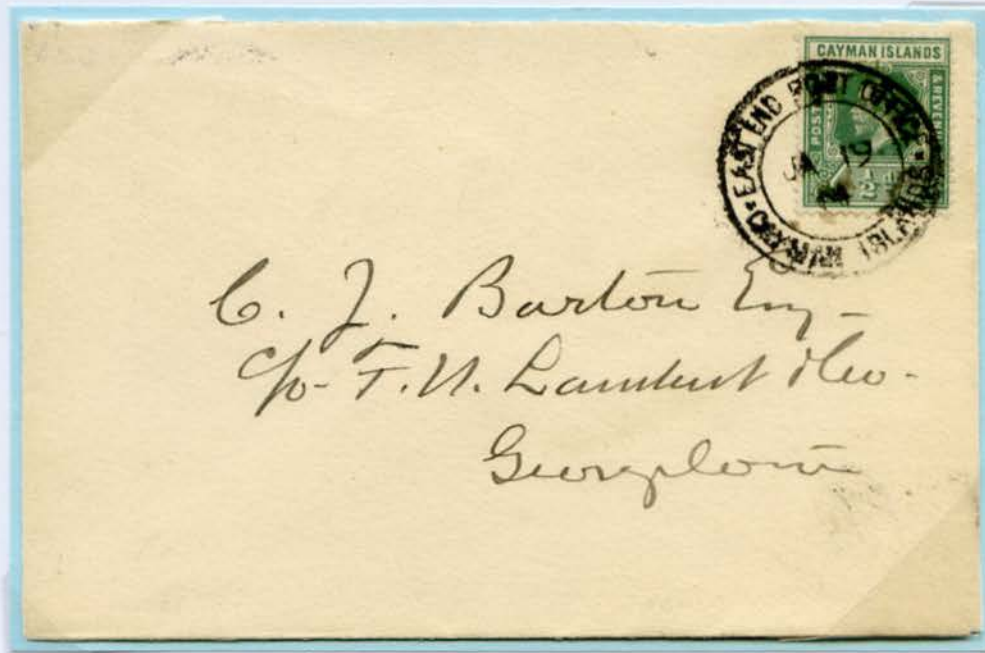 CAYMAN ISLANDS
POST
& REVENUE
½ d
EAST END POST OFFICE
JA 19
GRAND CAYMAN ISLANDS
C. J. Barton Esq-
c/o- T. N. Lambert & Co-
Georgetown